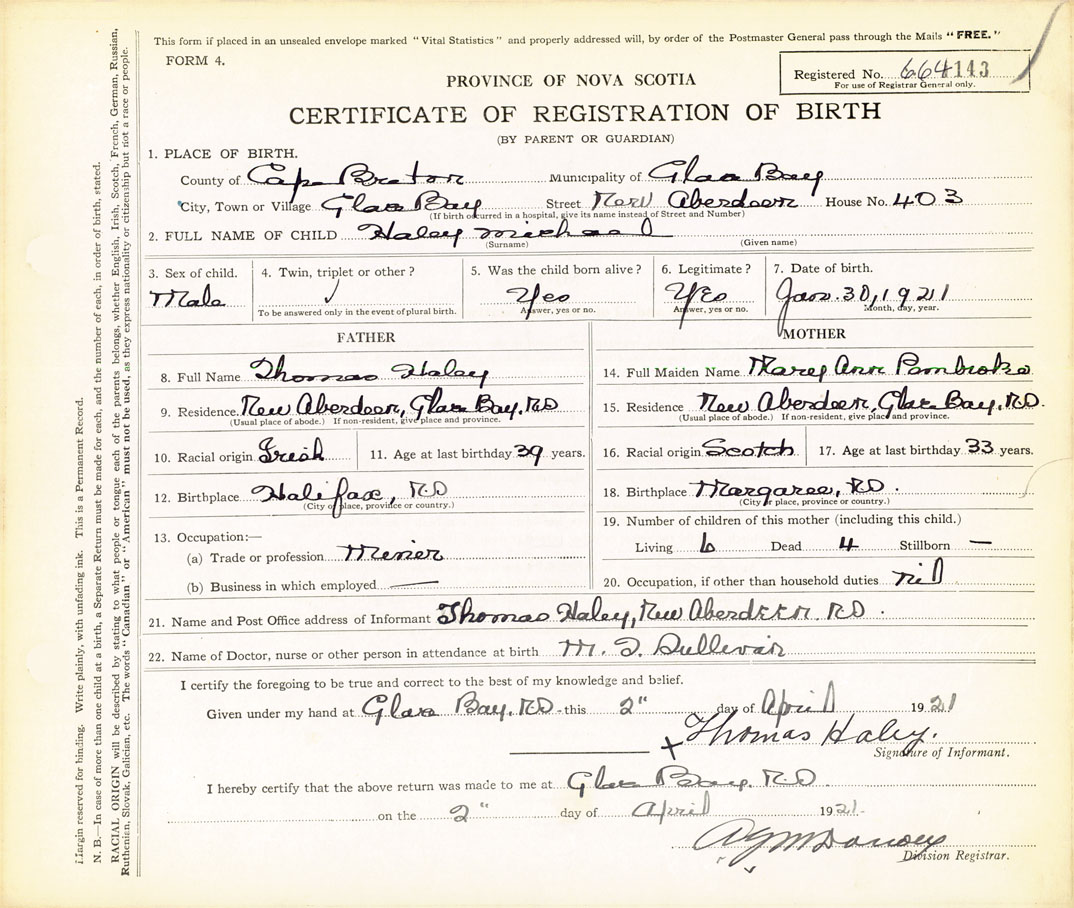 This form if placed in an unsealed envelope marked "Vital Statistics" and properly addressed will, by order of the Postmaster General pass through the Mails "FREE."
FORM 4.
Registered No. 664143
For use of Registrar General only.
PROVINCE OF NOVA SCOTIA
CERTIFICATE OF REGISTRATION OF BIRTH
(BY PARENT OR GUARDIAN)
1. PLACE OF BIRTH.
County of Cape Breton Municipality of Glace Bay
City, Town or Village Glace Bay Street New Aberdeen House No. 403
(If birth occurred in a hospital, give its name instead of Street and Number)
2. FULL NAME OF CHILD Haley Michael
(Surname) (Given name)
3. Sex of child. 4. Twin, triplet or other? 5. Was the child born alive? 6. Legitimate? 7. Date of birth.
Male ✓ Yes Yes Jan. 30, 1921
To be answered only in the event of plural birth. Answer, yes or no. Answer, yes or no. Month, day, year.
FATHER
8. Full Name Thomas Haley
9. Residence. New Aberdeen, Glace Bay. N.S
(Usual place of abode.) If non-resident, give place and province.
10. Racial origin Irish 11. Age at last birthday 39 years.
12. Birthplace Halifax, N.S
(City or place, province or country.)
13. Occupation:—
(a) Trade or profession Miner
(b) Business in which employed —
MOTHER
14. Full Maiden Name Mary Ann Pembroke
15. Residence New Aberdeen, Glace Bay. N.S.
(Usual place of abode.) If non-resident, give place and province.
16. Racial origin Scotch 17. Age at last birthday 33 years.
18. Birthplace Margaree, N.S.
(City or place, province or country.)
19. Number of children of this mother (including this child.)
Living 6 Dead 4 Stillborn —
20. Occupation, if other than household duties nil
21. Name and Post Office address of Informant Thomas Haley, New Aberdeen N.S.
22. Name of Doctor, nurse or other person in attendance at birth M. T. Sullivan
I certify the foregoing to be true and correct to the best of my knowledge and belief.
Given under my hand at Glace Bay. N.S. this 2" day of April 1921
X Thomas Haley.
Signature of Informant.
I hereby certify that the above return was made to me at Glace Bay. N.S
on the 2" day of April 1921.
Division Registrar.
Margin reserved for binding. Write plainly, with unfading ink. This is a Permanent Record.
N. B.—In case of more than one child at a birth, a Separate Return must be made for each, and the number of each, in order of birth, stated.
RACIAL ORIGIN will be described by stating to what people or tongue each of the parents belongs, whether English, Irish, Scotch, French, German, Russian,
Ruthenian, Slovak, Galician, etc. The words "Canadian" or "American" must not be used, as they express nationality or citizenship but not a race or people.